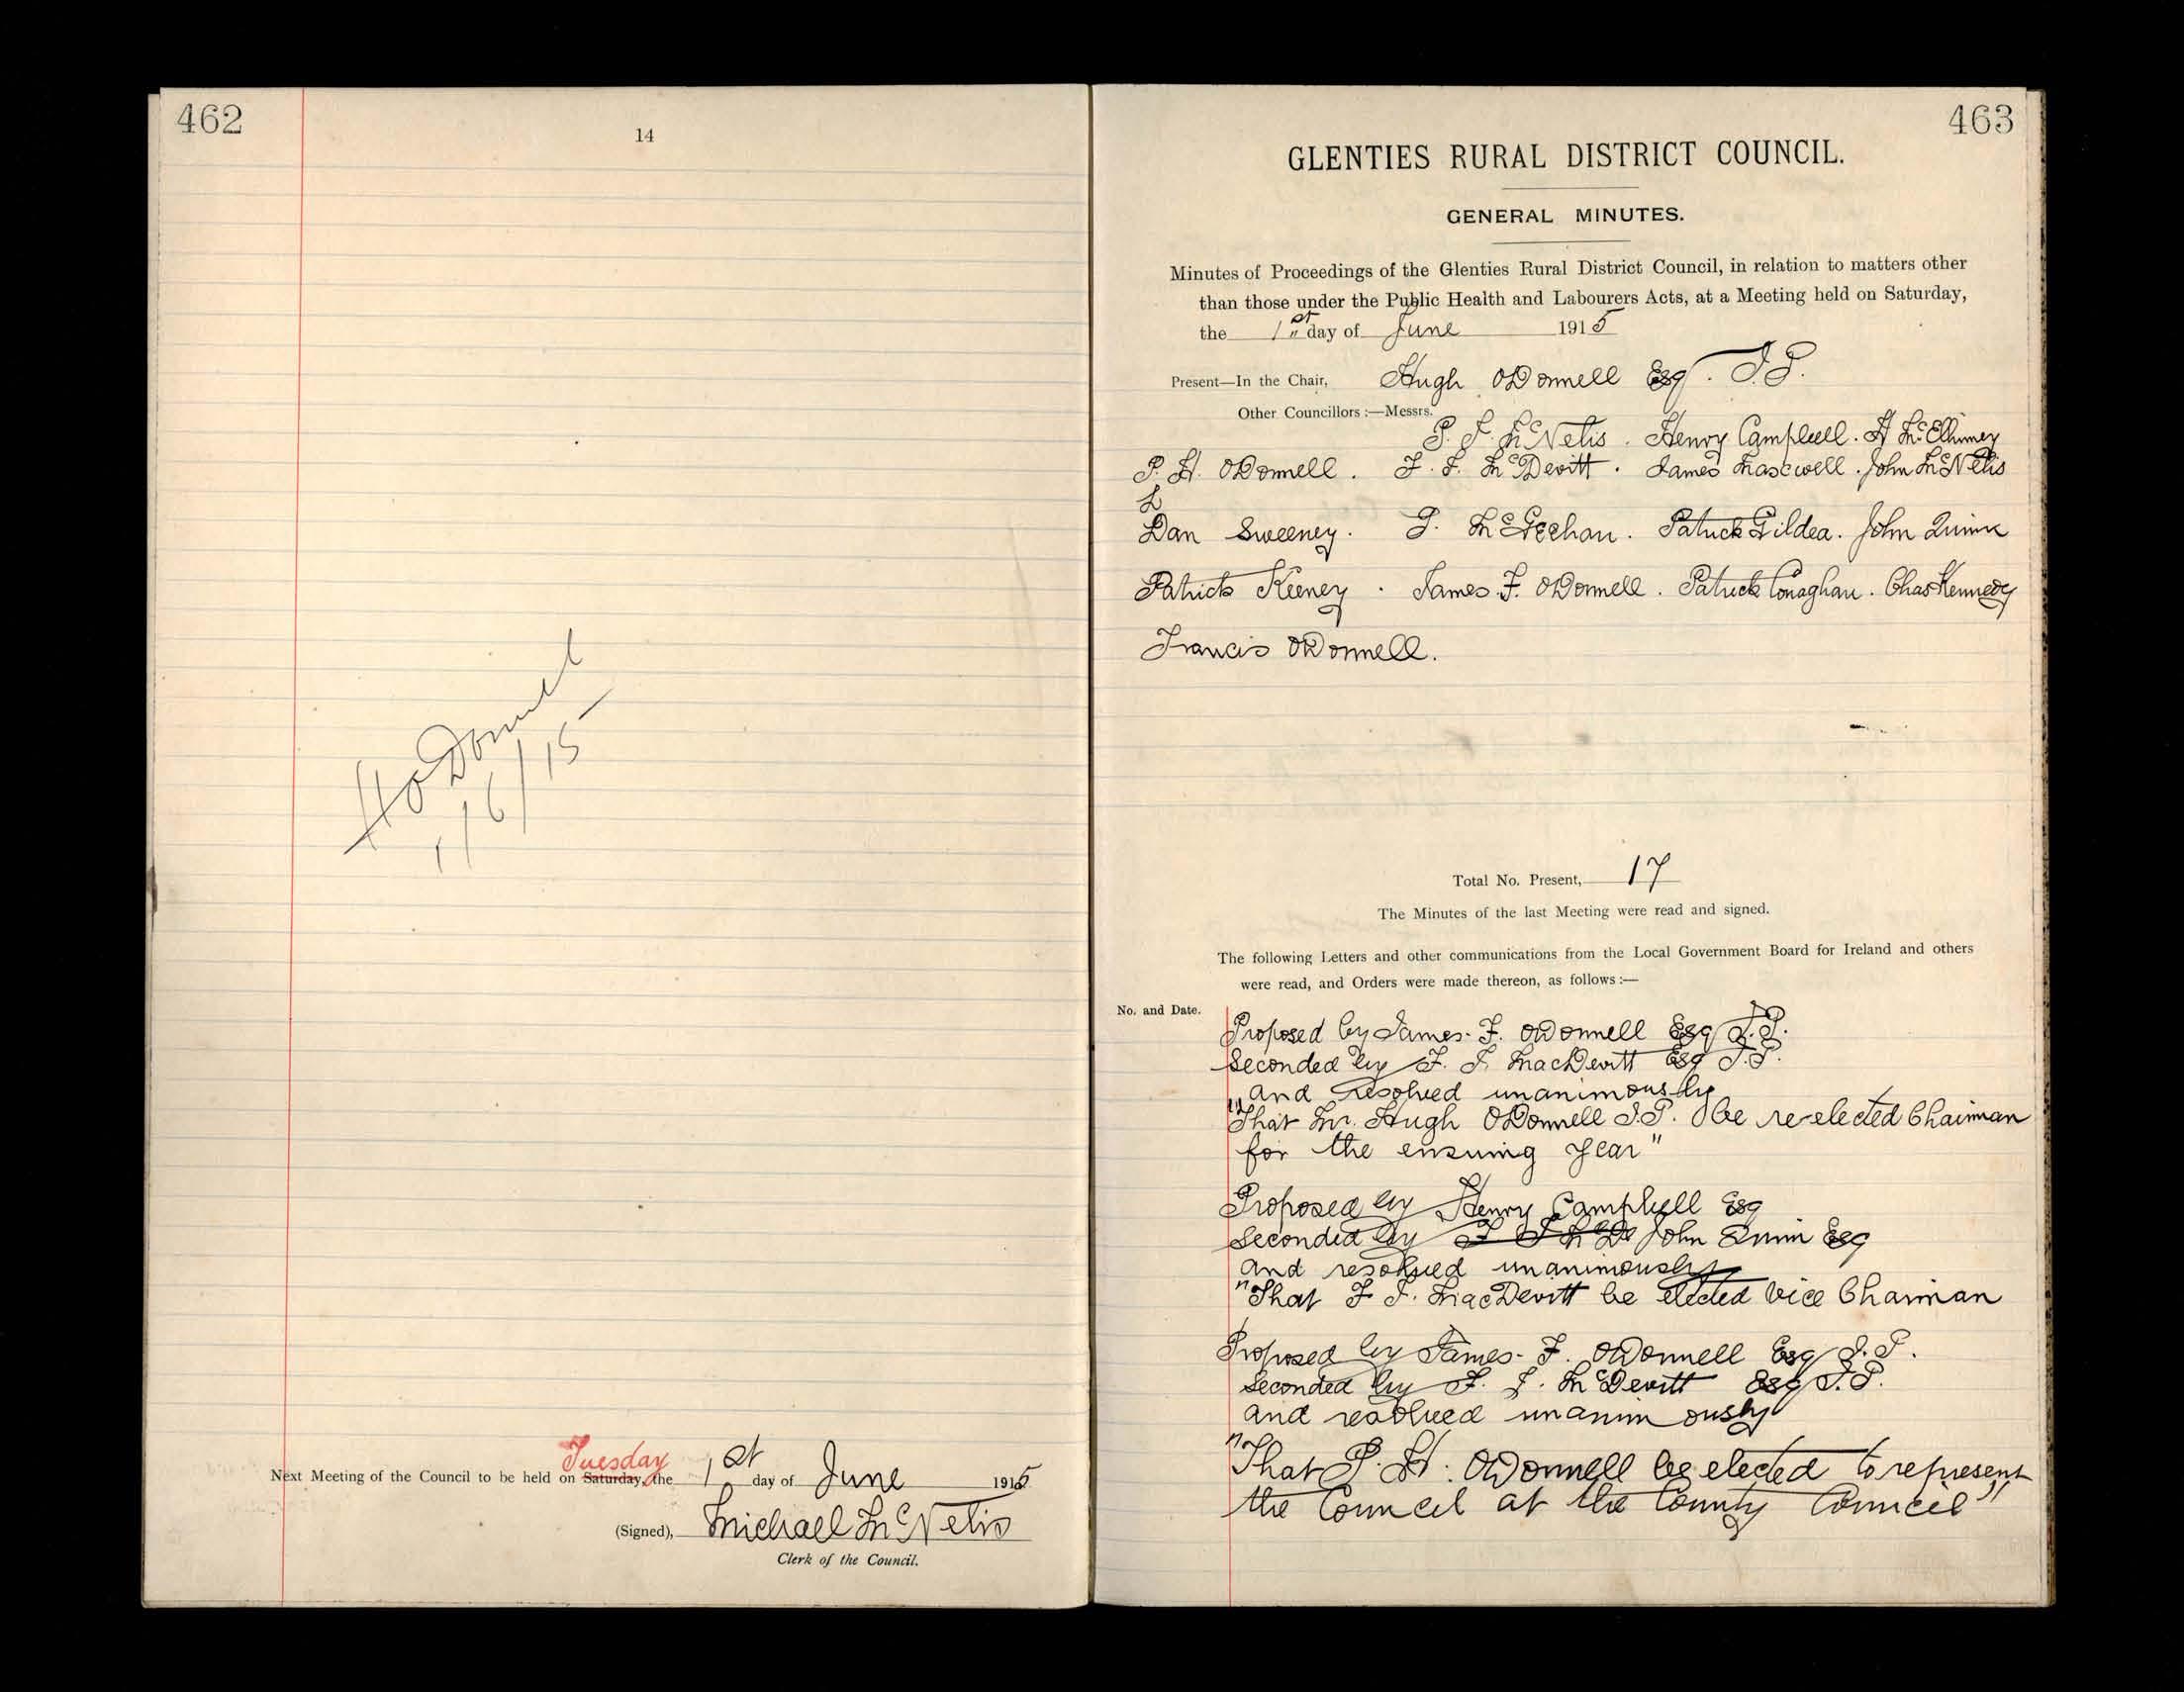 462
14
H O Donnell
1/6/15
Tuesday
Next Meeting of the Council to be held on Saturday, the 1st day of June 1915
(Signed), Michael McNelis
Clerk of the Council.
463
GLENTIES RURAL DISTRICT COUNCIL.
GENERAL MINUTES.
Minutes of Proceedings of the Glenties Rural District Council, in relation to matters other
than those under the Public Health and Labourers Acts, at a Meeting held on Saturday,
the 1st day of June 1915
Present—In the Chair, Hugh O'Donnell Esq. J.P.
Other Councillors :—Messrs.
P. J. McNelis. Henry Campbell. H McElhinney
P. H. O'Donnell. F. J. McDevitt. James Maxwell. John McNelis
Dan Sweeney. P. McGeehan. Patrick Gildea. John Quinn
Patrick Keeney. James F. O'Donnell. Patrick Conaghan. Chas Kennedy
Francis O'Donnell.
Total No. Present, 17
The Minutes of the last Meeting were read and signed.
The following Letters and other communications from the Local Government Board for Ireland and others
were read, and Orders were made thereon, as follows :—
No. and Date.
Proposed by James. F. O'Donnell Esq J.P.
Seconded by F. J. MacDevitt Esq J.P.
and resolved unanimously
"That Mr. Hugh O'Donnell J.P. be re-elected Chairman
for the ensuing year"
Proposed by Henry Campbell Esq
Seconded by John Quinn Esq
and resolved unanimously
"That F. J. MacDevitt be elected Vice Chairman
Proposed by James. F. O'Donnell Esq J.P.
Seconded by F. J. McDevitt Esq J.P.
and resolved unanimously
"That P. H. O'Donnell be elected to represent
the Council at the County Council"